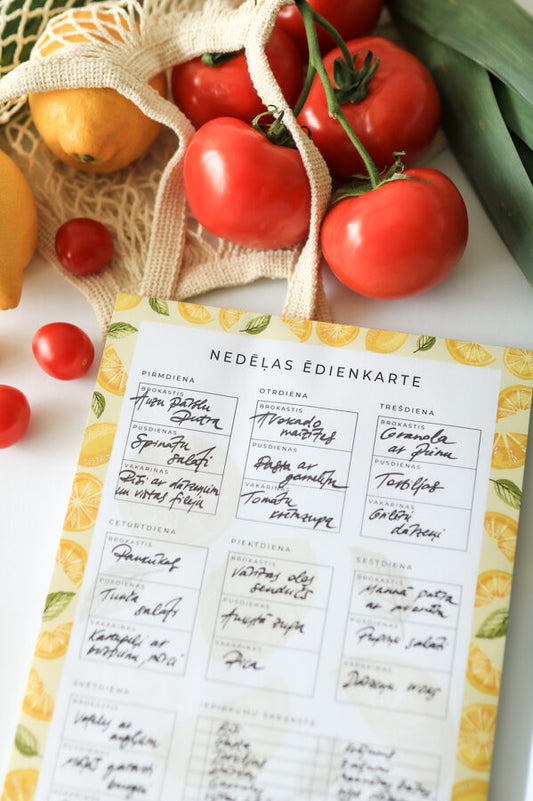 NEDĒĻAS ĒDIENKARTE
PIRMDIENA
BROKASTIS
Auzu pārslu
putra
PUSDIENAS
Spinātu
salāti
VAKARIŅAS
Rīsi ar dārzeņiem
un vistas fileju
OTRDIENA
BROKASTIS
Avokado
maizītes
PUSDIENAS
Pasta ar
garnelēm
VAKARIŅAS
Tomātu
krēmzupa
TREŠDIENA
BROKASTIS
Granola
ar pienu
PUSDIENAS
Tortiljas
VAKARIŅAS
Grilēti
dārzeņi
CETURTDIENA
BROKASTIS
Pankūkas
PUSDIENAS
Tunča
salāti
VAKARIŅAS
Kartupeļi ar
PIEKTDIENA
BROKASTIS
Vārītas olas
sendvičs
PUSDIENAS
Aukstā zupa
VAKARIŅAS
Pica
SESTDIENA
BROKASTIS
Mannā putra
ar
PUSDIENAS
Pupiņu salāti
VAKARIŅAS
Dārzeņu
SVĒTDIENA
BROKASTIS
Vafeles ar
augļiem
PUSDIENAS
IEPIRKUMU SARAKSTS
Rīsi
Pasta